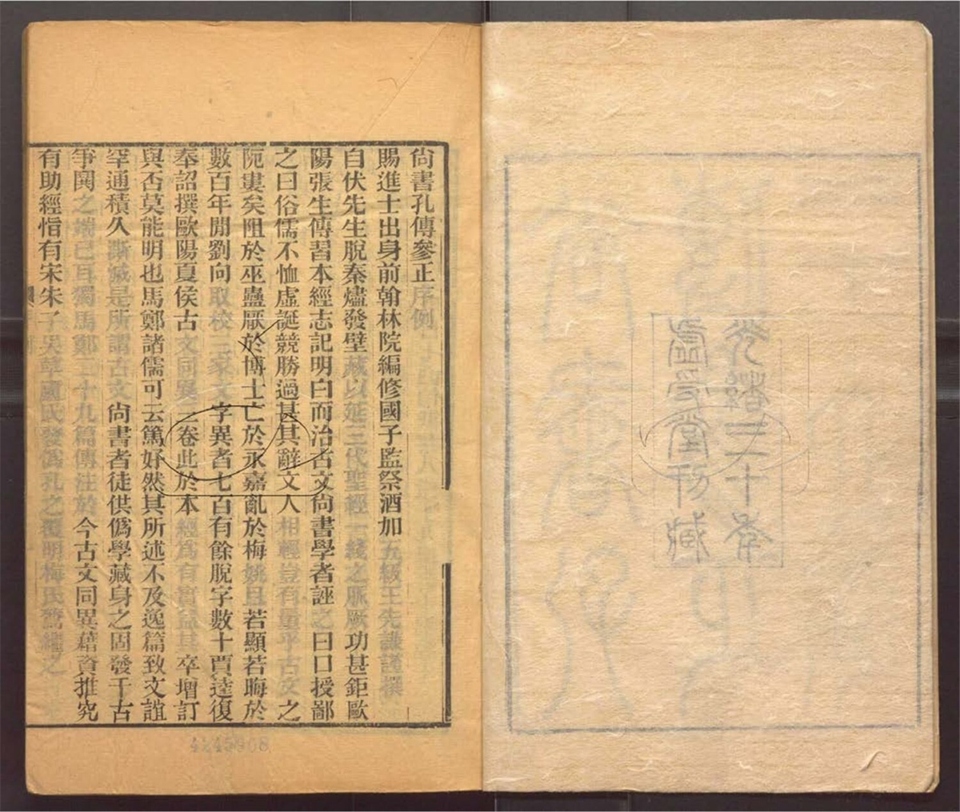 光緒三十年
虛受堂刊藏
尚書孔傳參正序例
賜進士出身前翰林院編修國子監祭酒加五級王先謙謹撰
自伏先生脫秦燼發壁藏以延三代聖經一綫之脈厥功甚鉅歐
陽張生傳習本經志記明白而治古文尚書學者誣之曰口授鄙
之曰俗儒不恤虛誕競勝過甚其辭文人相輕豈有量乎古文之
阨婁矣阻於巫蠱厭於博士亡於永嘉亂於梅姚且若顯若晦於
數百年閒劉向取校三家文字異者七百有餘脫字數十賈逵復
奉詔撰歐陽夏侯古文同異三卷此於本經爲有實益其卒增訂
與否莫能明也馬鄭諸儒可云篤好然其所述不及逸篇致文誼
罕通積久漸滅是所謂古文尚書者徒供僞學藏身之固發千古
爭鬨之端已耳獨馬鄭二十九篇傳注於今古文同異藉資推究
有助經恉有宋朱子吳草廬氏發僞孔之覆明梅氏鷟繼之